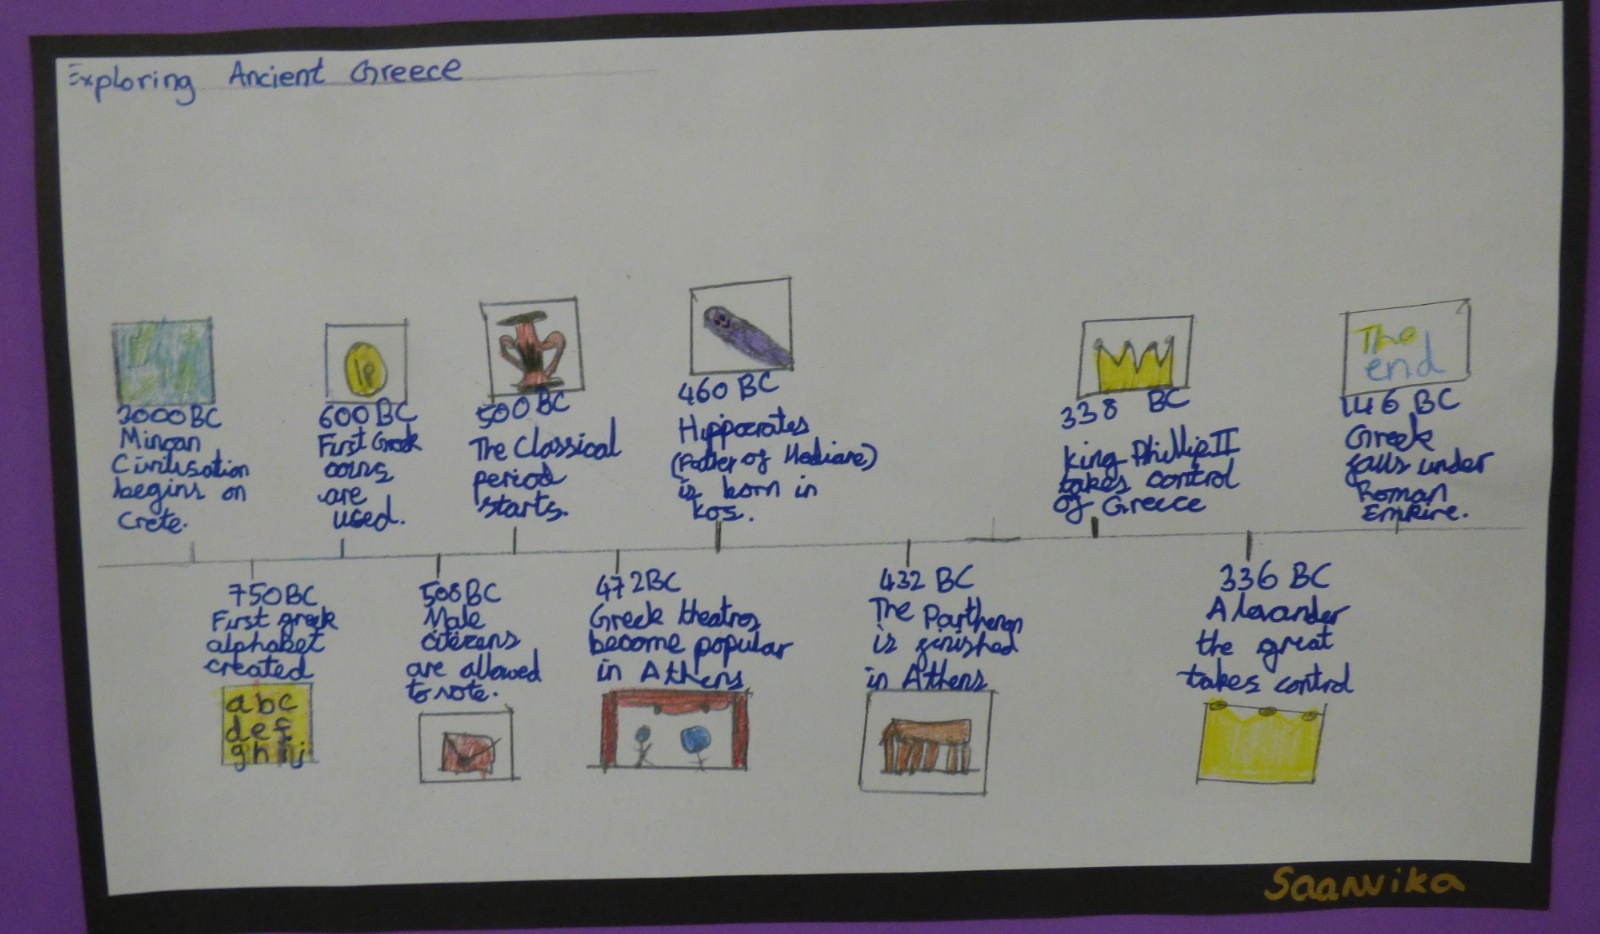 Exploring Ancient Greece
3000 BC
Minoan
Civilisation
begins on
Crete.
750 BC
First greek
alphabet
created
a b c
d e f
g h i j
600 BC
First Greek
coins
are
used.
1p
508 BC
Male
citizens
are allowed
to vote.
500 BC
The Classical
period
starts.
472 BC
Greek theatres
become popular
in Athens
460 BC
Hippocrates
(Father of Medicine)
is born in
kos.
432 BC
The Parthenon
is finished
in Athens
338 BC
king Phillip II
takes control
of Greece
336 BC
Alexander
the great
takes control
The
end
146 BC
Greek
falls under
Roman
Empire.
Saanvika